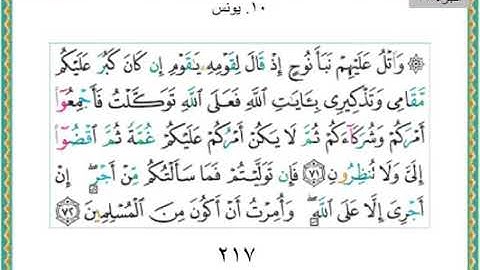 ١٠. يونس
۞ وَٱتْلُ عَلَيْهِمْ نَبَأَ نُوحٍ إِذْ قَالَ لِقَوْمِهِۦ يَٰقَوْمِ إِن كَانَ كَبُرَ عَلَيْكُم
مَّقَامِى وَتَذْكِيرِى بِـَٔايَٰتِ ٱللَّهِ فَعَلَى ٱللَّهِ تَوَكَّلْتُ فَأَجْمِعُوٓا۟
أَمْرَكُمْ وَشُرَكَآءَكُمْ ثُمَّ لَا يَكُنْ أَمْرُكُمْ عَلَيْكُمْ غُمَّةً ثُمَّ ٱقْضُوٓا۟
إِلَىَّ وَلَا تُنظِرُونِ ﴿٧١﴾ فَإِن تَوَلَّيْتُمْ فَمَا سَأَلْتُكُم مِّنْ أَجْرٍ ۖ إِنْ
أَجْرِىَ إِلَّا عَلَى ٱللَّهِ ۖ وَأُمِرْتُ أَنْ أَكُونَ مِنَ ٱلْمُسْلِمِينَ ﴿٧٢﴾
٢١٧